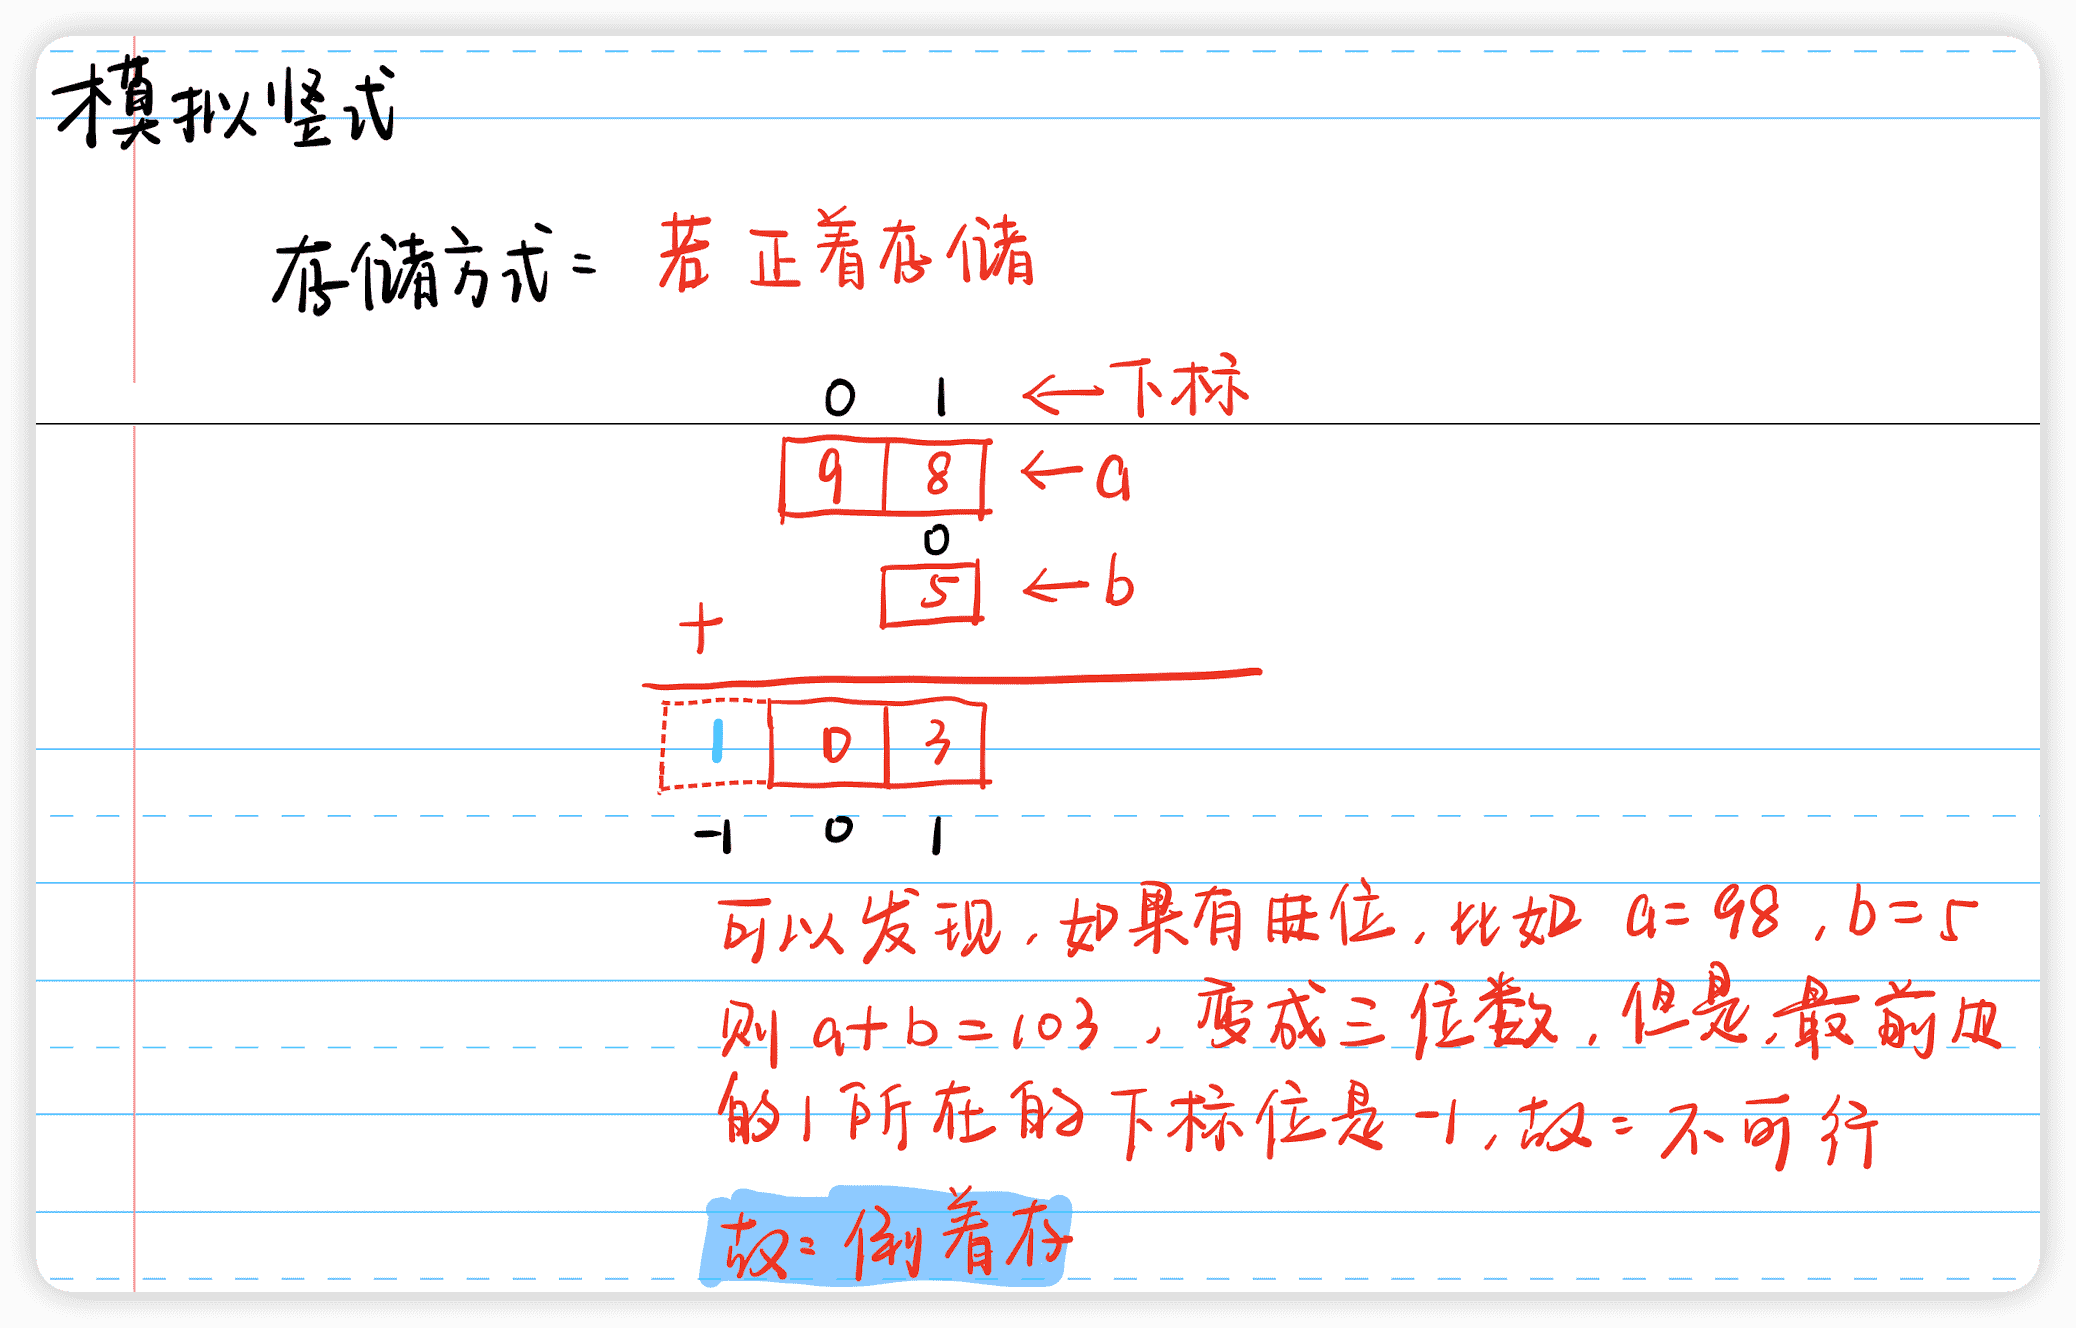 模拟竖式
存储方式: 若正着存储
0 1 ← 下标
9 8 ← a
0
5 ← b
+
1 0 3
-1 0 1
可以发现,如果有进位,比如 a=98,b=5
则 a+b=103,变成三位数,但是,最前边
的1所在的下标位是-1,故:不可行
故:倒着存